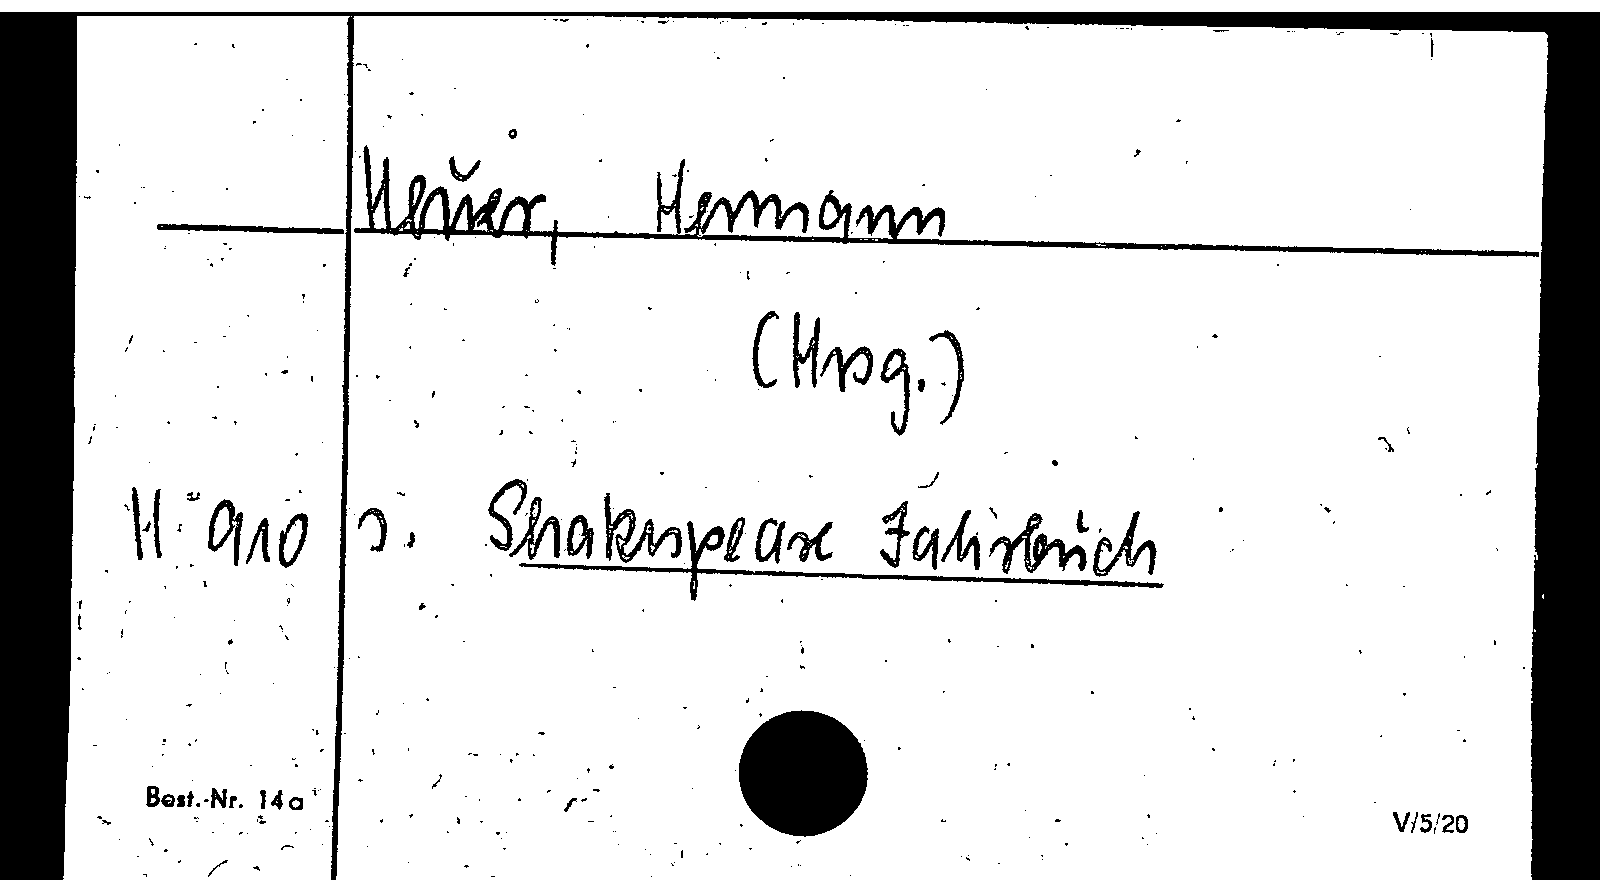 Heuer, Hermann
(Hrsg.)
H 910 s. Shakespeare Jahrbuch
Best.-Nr. 14a
V/5/20